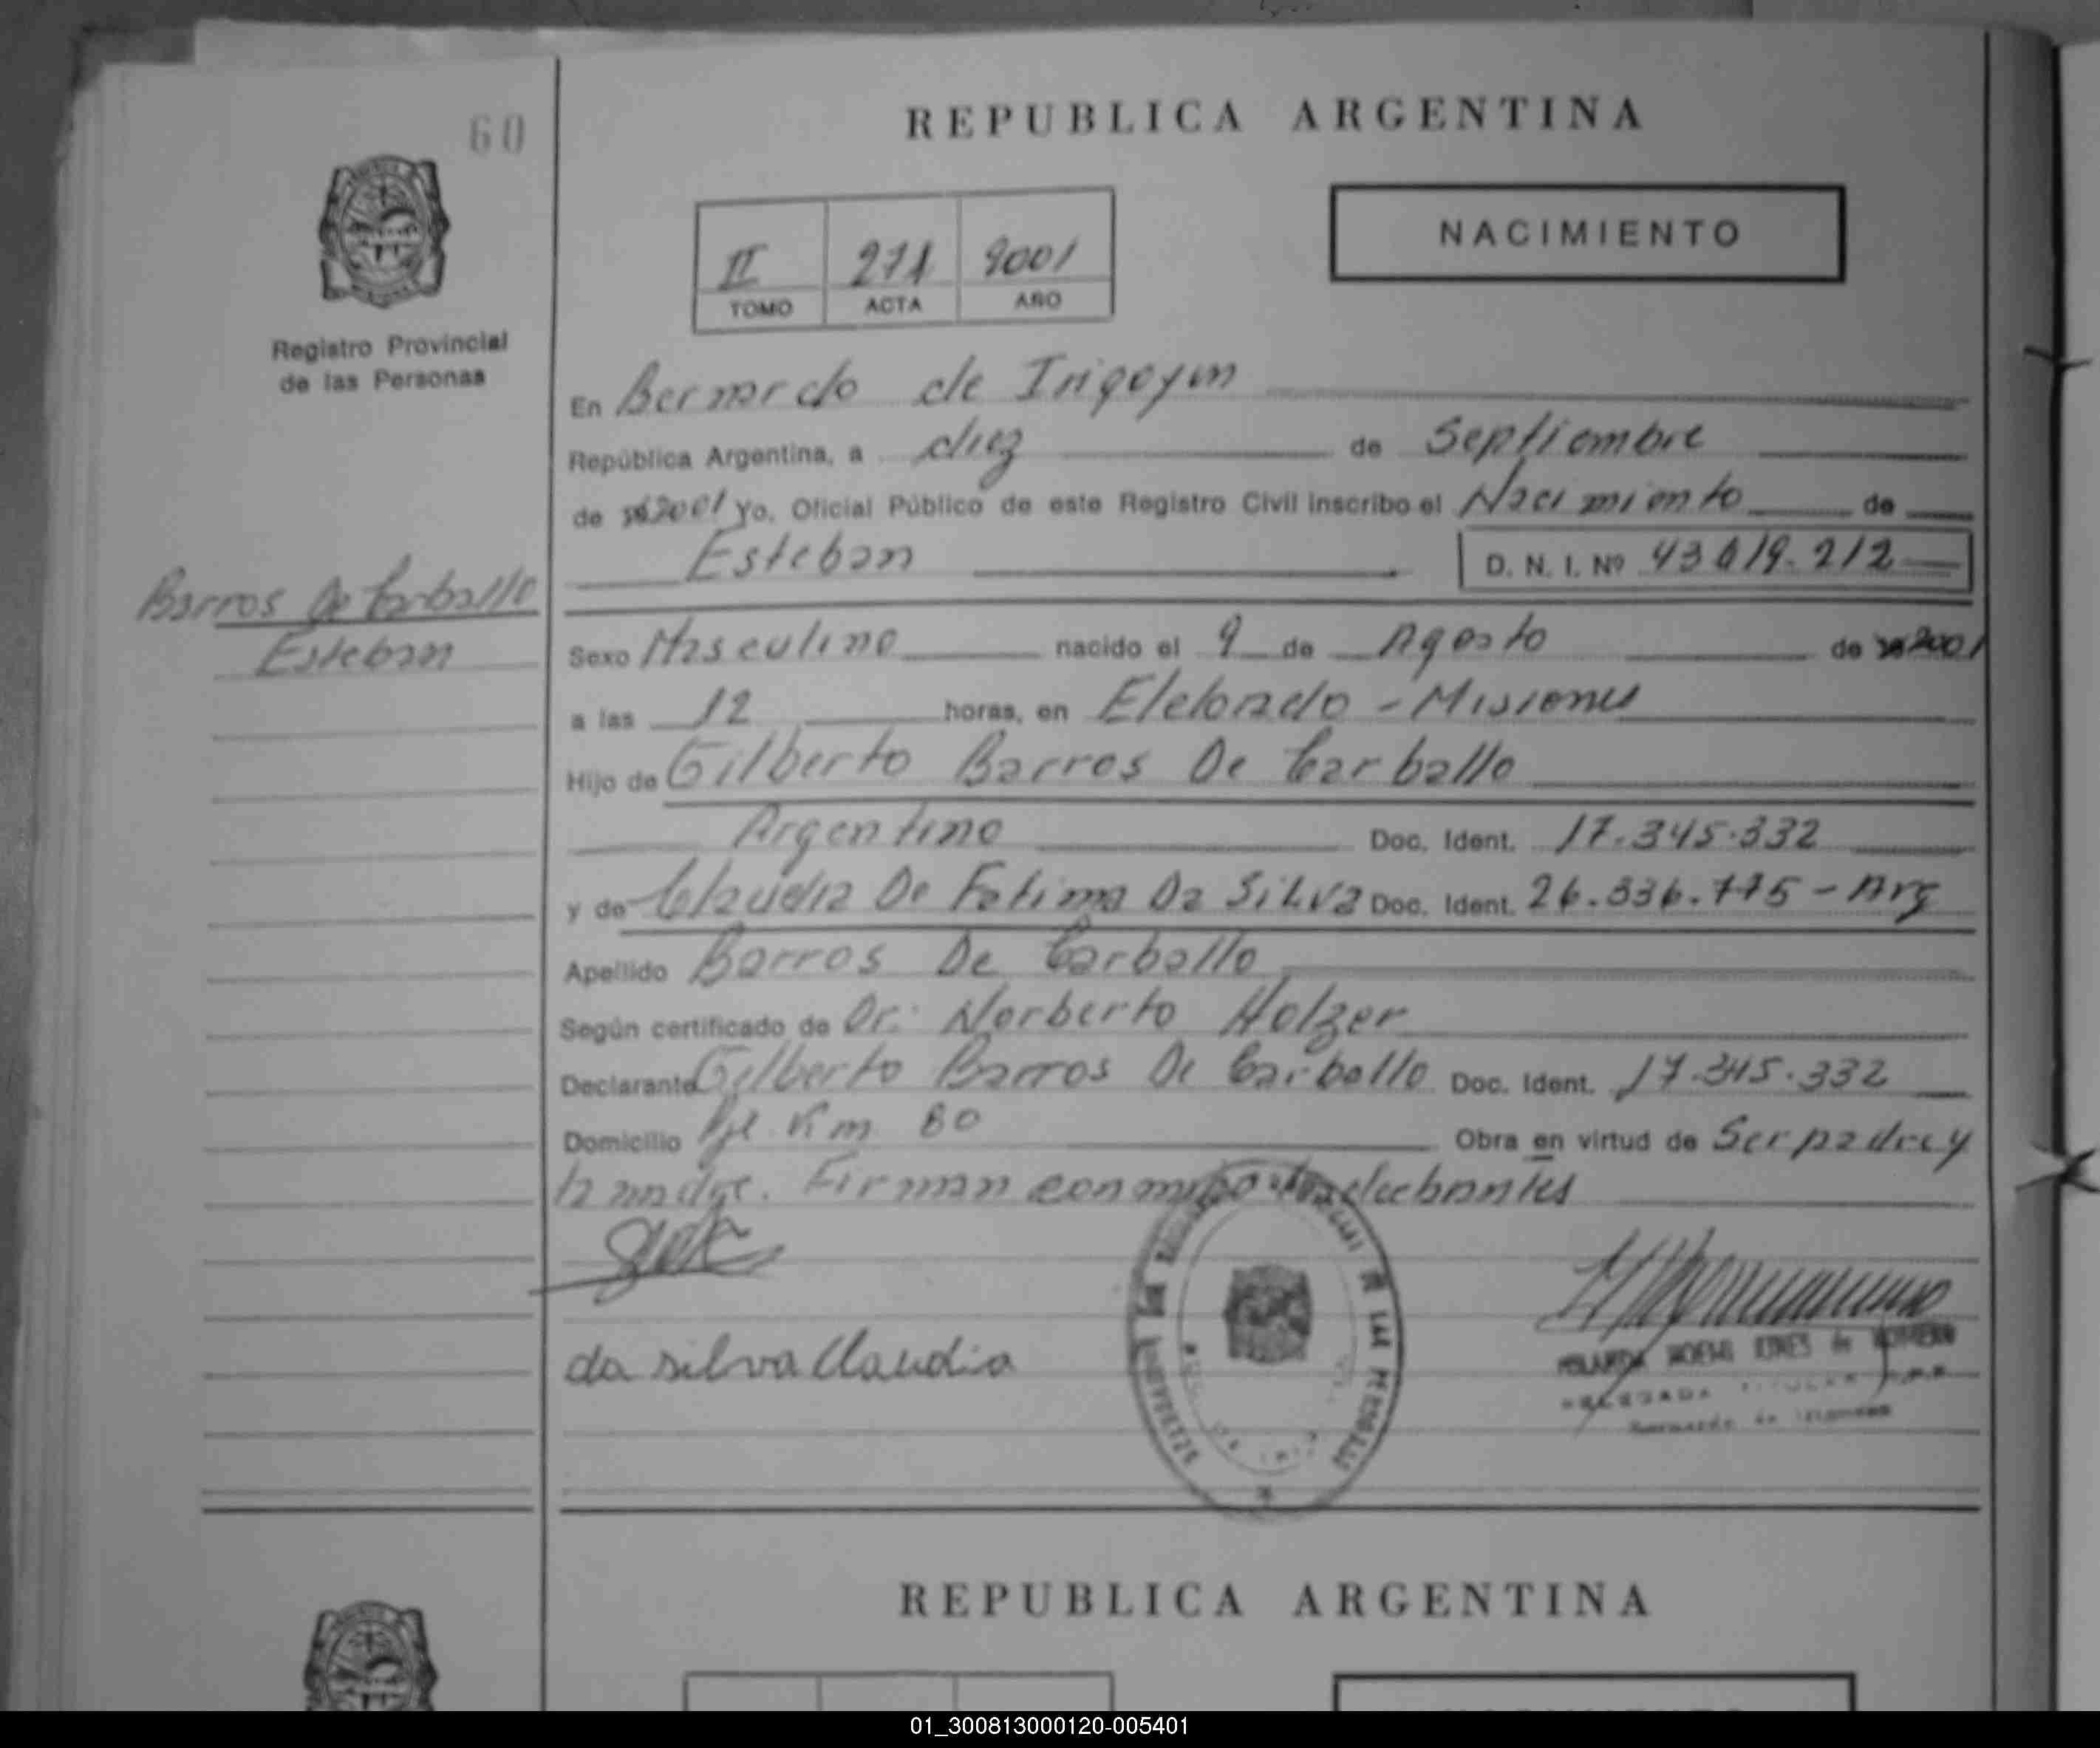 60
REPUBLICA ARGENTINA
NACIMIENTO
II 271 2001
TOMO ACTA AÑO
Registro Provincial
de las Personas
En Bernardo de Irigoyen
República Argentina, a diez de Septiembre
de 2001 Yo, Oficial Público de este Registro Civil inscribo el Nacimiento de
Esteban D. N. I. Nº 43.019.212
Barros De Carballo
Esteban
Sexo Masculino nacido el 9 de Agosto de 2001
a las 12 horas, en Eldorado - Misiones
Hijo de Gilberto Barros De Carballo
Argentino Doc. Ident. 17.345.332
y de Claudia De Fatima Da Silva Doc. Ident. 26.336.775 - Arg
Apellido Barros De Carballo
Según certificado de Dr. Norberto Holzer
Declarante Gilberto Barros De Carballo Doc. Ident. 17.345.332
Domicilio Pje. Km 80 Obra en virtud de Ser padre y
la madre. Firman conmigo los declarantes
da silva Claudia
DE LAS PERSONAS
REPUBLICA ARGENTINA
01_300813000120-005401